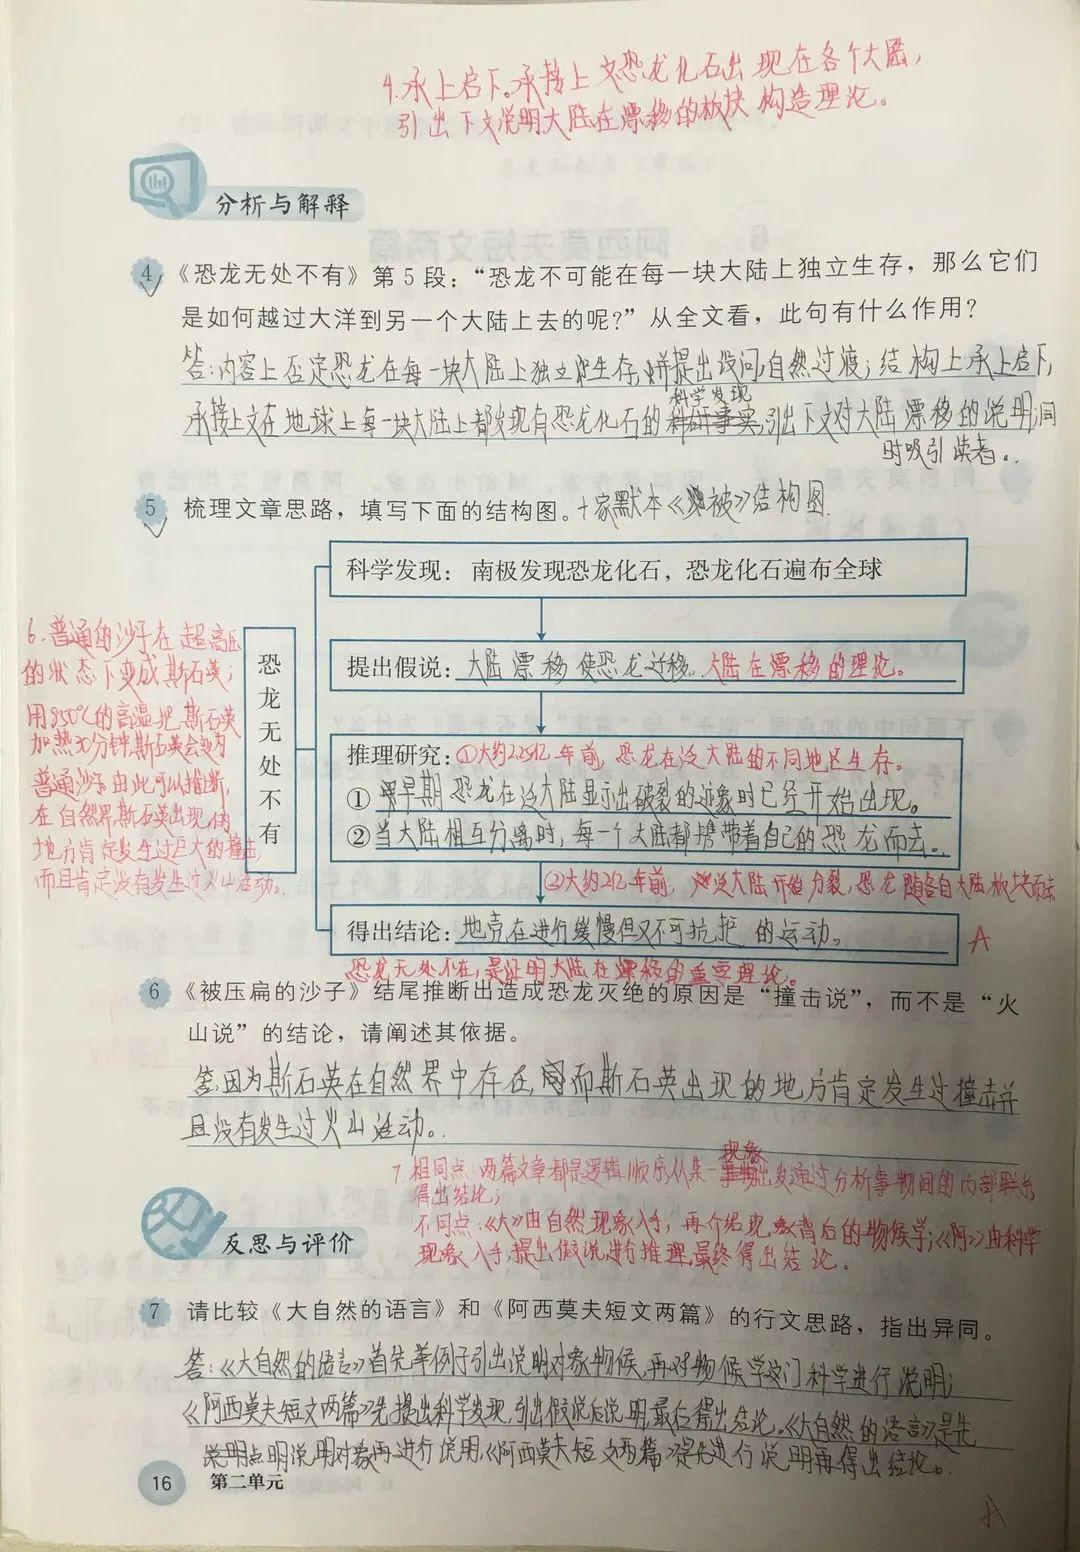 4.承上启下。承接上文恐龙化石出现在各个大陆,
引出下文说明大陆在漂移的板块构造理论。
分析与解释
4 《恐龙无处不有》第5段：“恐龙不可能在每一块大陆上独立生存，那么它们
是如何越过大洋到另一个大陆上去的呢?”从全文看，此句有什么作用？
答:内容上否定恐龙在每一块大陆上独立生存,并提出设问,自然过渡;结构上承上启下,
科学发现
承接上文在地球上每一块大陆上都发现有恐龙化石的科研事实,引出下文对大陆漂移的说明,同
时吸引读者。
5 梳理文章思路，填写下面的结构图。+家默本《被》结构图.
科学发现：南极发现恐龙化石，恐龙化石遍布全球
6.普通的沙子在超高压
的状态下变成斯石英;
用850℃的高温把斯石英
加热30分钟,斯石英会变为
普通沙子。由此可以推断,
在自然界斯石英出现的
地方肯定发生过巨大的撞击,
而且肯定没有发生过火山活动。
恐龙无处不有
提出假说：大陆漂移使恐龙迁移。大陆在漂移的理论。
推理研究：①大约2.25亿年前,恐龙在泛大陆的不同地区生存。
① 早期恐龙在泛大陆显示出破裂的迹象时已经开始出现。
②当大陆相互分离时,每一个大陆都携带着自己的恐龙而去。
②大约2亿年前,泛大陆开始分裂,恐龙随各自大陆板块而去。
得出结论：地壳在进行缓慢但又不可抗拒的运动。
A
恐龙无处不在,是证明大陆在漂移的重要理论。
6 《被压扁的沙子》结尾推断出造成恐龙灭绝的原因是“撞击说”，而不是“火
山说”的结论，请阐述其依据。
答:因为斯石英在自然界中存在,而斯石英出现的地方肯定发生过撞击并
且没有发生过火山运动。
现象
7.相同点:两篇文章都是逻辑顺序,从某一事物出发通过分析事物间的内部联系,
得出结论;
不同点:《大》由自然现象入手,再介绍现象背后的物候学;《阿》由科学
现象入手,提出假说,进行推理,最终得出结论。
反思与评价
7 请比较《大自然的语言》和《阿西莫夫短文两篇》的行文思路，指出异同。
答:《大自然的语言》首先举例子引出说明对象物候,再对物候学这门科学进行说明;
《阿西莫夫短文两篇》先提出科学发现,引出假说后说明,最后得出结论。《大自然的语言》是先
说明点明说明对象再进行说明,《阿西莫夫短文两篇》是先进行说明再得出结论。
16 第二单元
A